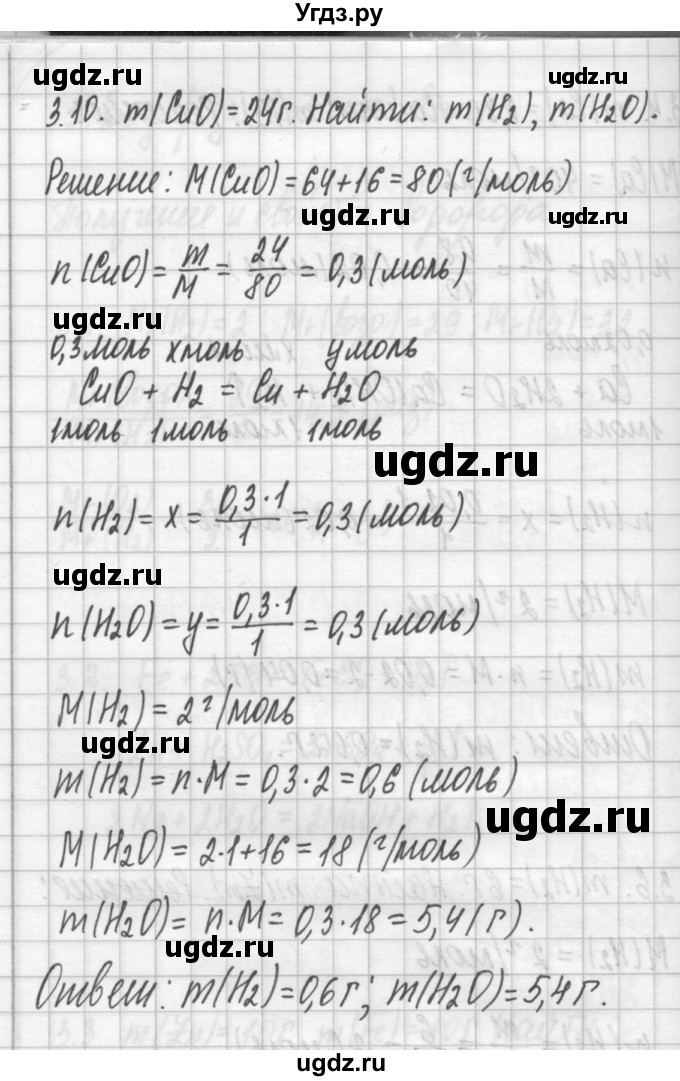 Угдз.ру
ugdz.ru ugdz.ru
3.10. m(CuO)=24г. Найти: m(H₂), m(H₂O).
Решение: M(CuO)=64+16=80(г/моль)
ugdz.ru ugdz.ru
n(CuO)=m/M=24/80=0,3(моль)
ugdz.ru
0,3моль xмоль yмоль
CuO+H₂=Cu+H₂O
1моль 1моль 1моль
ugdz.ru
n(H₂)=x=0,3·1/1=0,3(моль)
ugdz.ru
n(H₂O)=y=0,3·1/1=0,3(моль)
M(H₂)=2г/моль
ugdz.ru
m(H₂)=n·M=0,3·2=0,6(моль)
ugdz.ru
M(H₂O)=2·1+16=18(г/моль)
m(H₂O)=n·M=0,3·18=5,4(г).
ugdz.ru
Ответ: m(H₂)=0,6г; m(H₂O)=5,4г.
ugdz.ru ugdz.ru
ugdz.ru